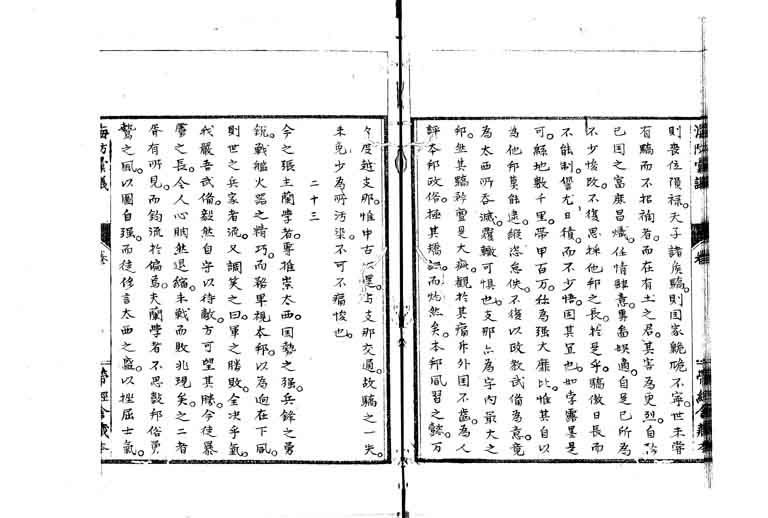 則喪位隕祿天子諸矦驕則国家覦硊不寧世未嘗
有驕而不招禍者而在有土之君其害為更烈自
已国之富庶昌熾任情肆意般樂娯適自是已所為
不少悛改不復思採他邦之長於是乎驕傲日長而
不能制譬尤日積而不少悟因其宜也如孛露生是
可緜地數千里帶甲百万仕為強大靡比惟其自以
為他邦莫能逮縦恣怠佚不復以政教武備為意竟
為太西所吞滅覆轍可懼也支那亦為宇内最大之
邦坐其驕矜䨇是大疾觀於其痛斥外国不齒為人
評本邦政俗極其矯誣而灼然矣本邦風習之懿万
々度越支那惟中古以還与支那交通故驕之一失
未免少為所污染不可不痛悛也
二十三
今之張主蘭學者専推崇太西国勢之强兵鋒之勇
銳戦艦火器之精巧而藐卑視本邦以為迥在下風
則世之兵家者流又調笑之曰軍之勝敗全决乎氣
我嚴吾武備毅然自守以待敵方可望其勝今徒暴
虜之長令人心䏏然退縮未戦而敗兆現矣之二者
胥有所見而鈞流於偏焉夫蘭學者不思敦邦俗勇
驁之風以圖自强而徒侈言太西之盛以挫屈士氣
海防彙議
卷
帶經舎藏本